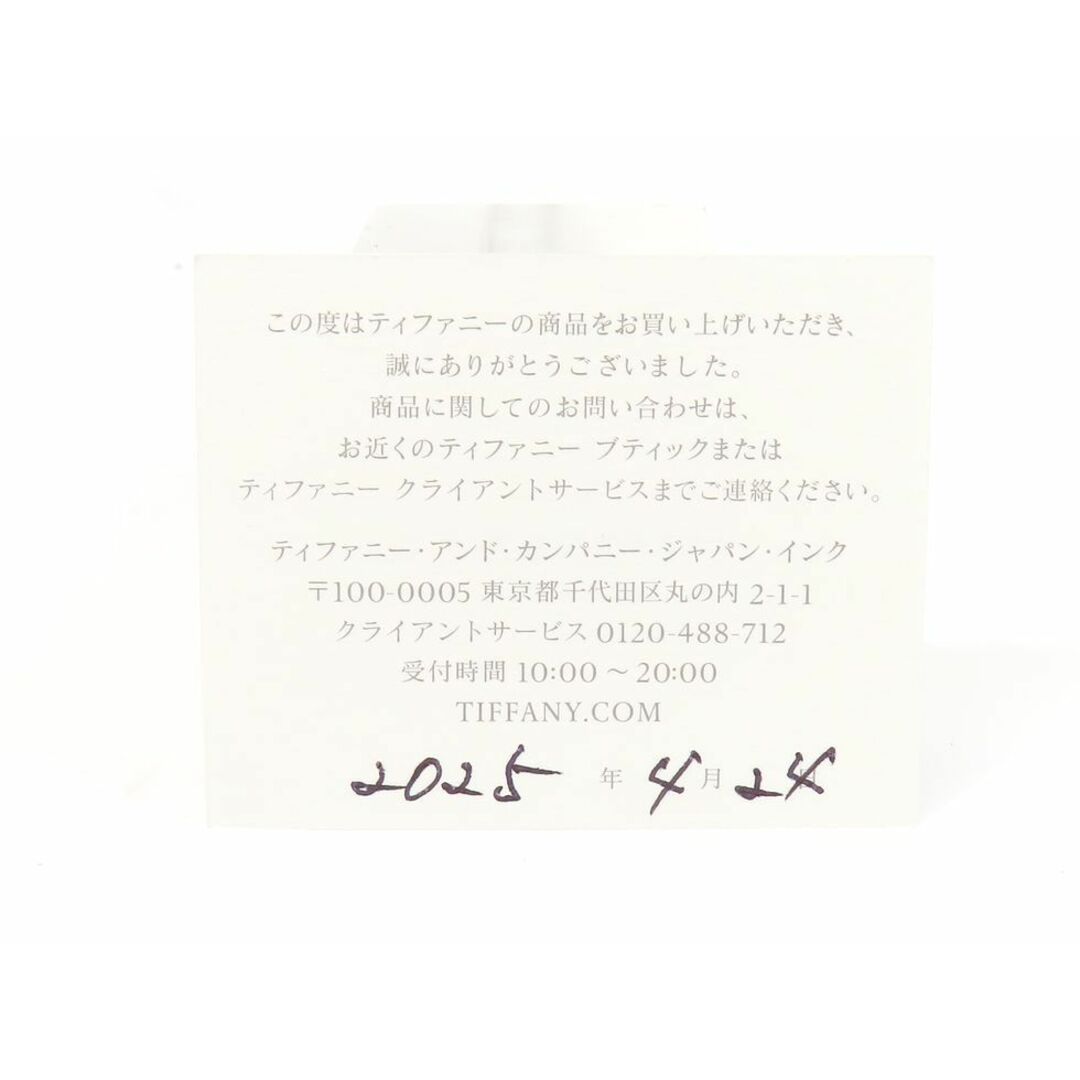 この度はティファニーの商品をお買い上げいただき、
誠にありがとうございました。
商品に関してのお問い合わせは、
お近くのティファニー ブティックまたは
ティファニー クライアントサービスまでご連絡ください。
ティファニー・アンド・カンパニー・ジャパン・インク
〒100-0005 東京都千代田区丸の内 2-1-1
クライアントサービス 0120-488-712
受付時間 10:00 ～ 20:00
TIFFANY.COM
2025 年 4 月 24 日